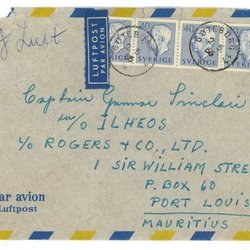 LUFTPOST
PAR AVION
40
SVERIGE
40
SVERIGE
GÖTEBORG
Captain Gunnar Sinclair
m/o ILHEOS
c/o ROGERS & CO., LTD.
1 SIR WILLIAM STREE
P.O. BOX 60
PORT LOUIS
MAURITIUS
par avion
Luftpost